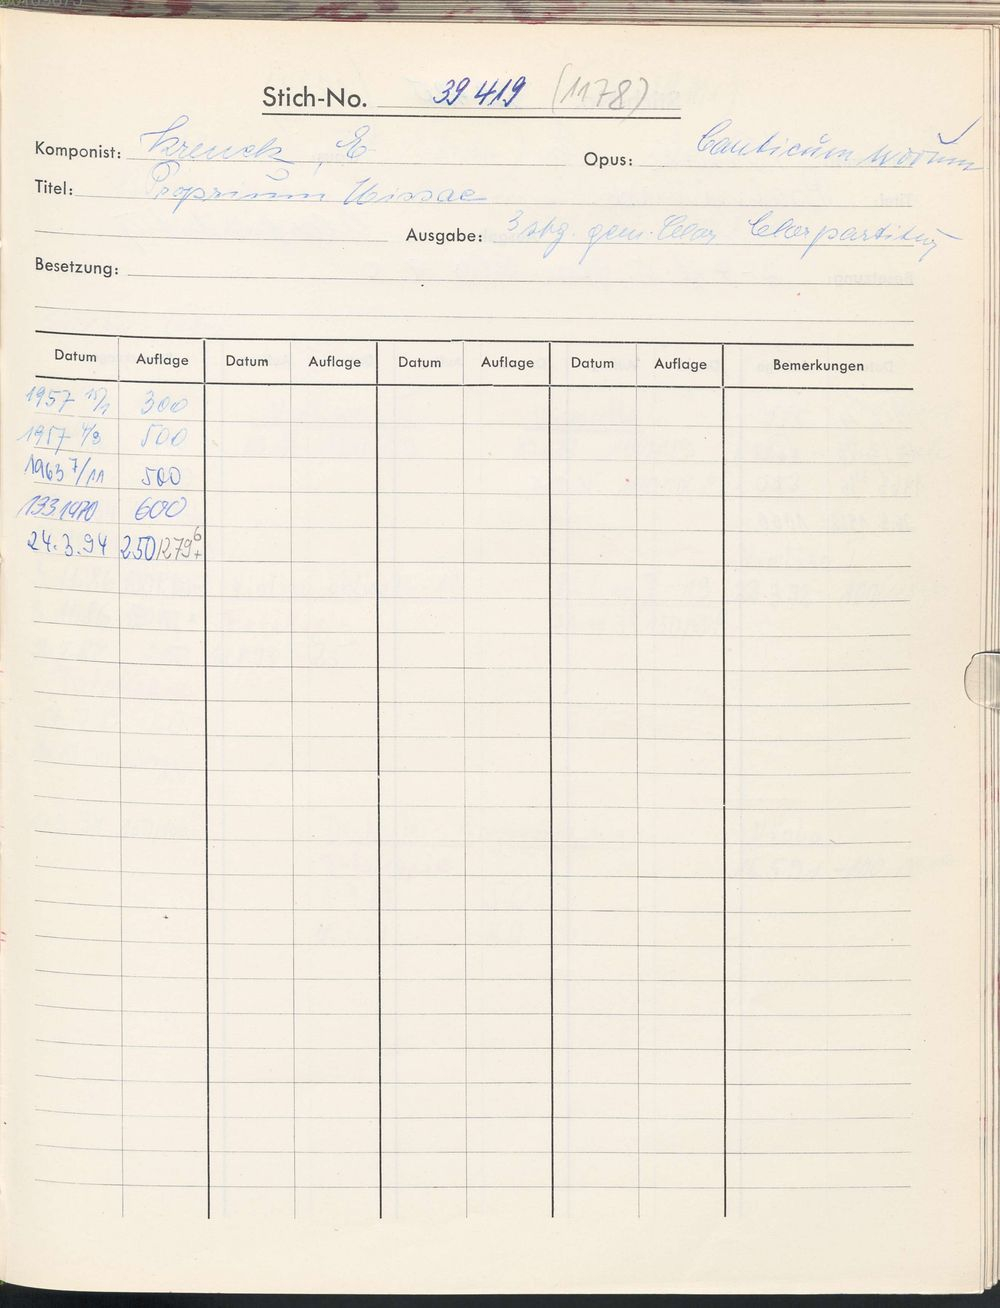 Stich-No. 39419 (1178)
Komponist: Krenek, E Opus: Canticum novum
Titel: Proprium Missae
Ausgabe: 3 stg. gem. Chor Chorpartitur
Besetzung:
Datum Auflage Datum Auflage Datum Auflage Datum Auflage Bemerkungen
1957 15/1 300
1957 4/8 500
1963 7/11 500
13.3.1970 600
24.3.94 250/279